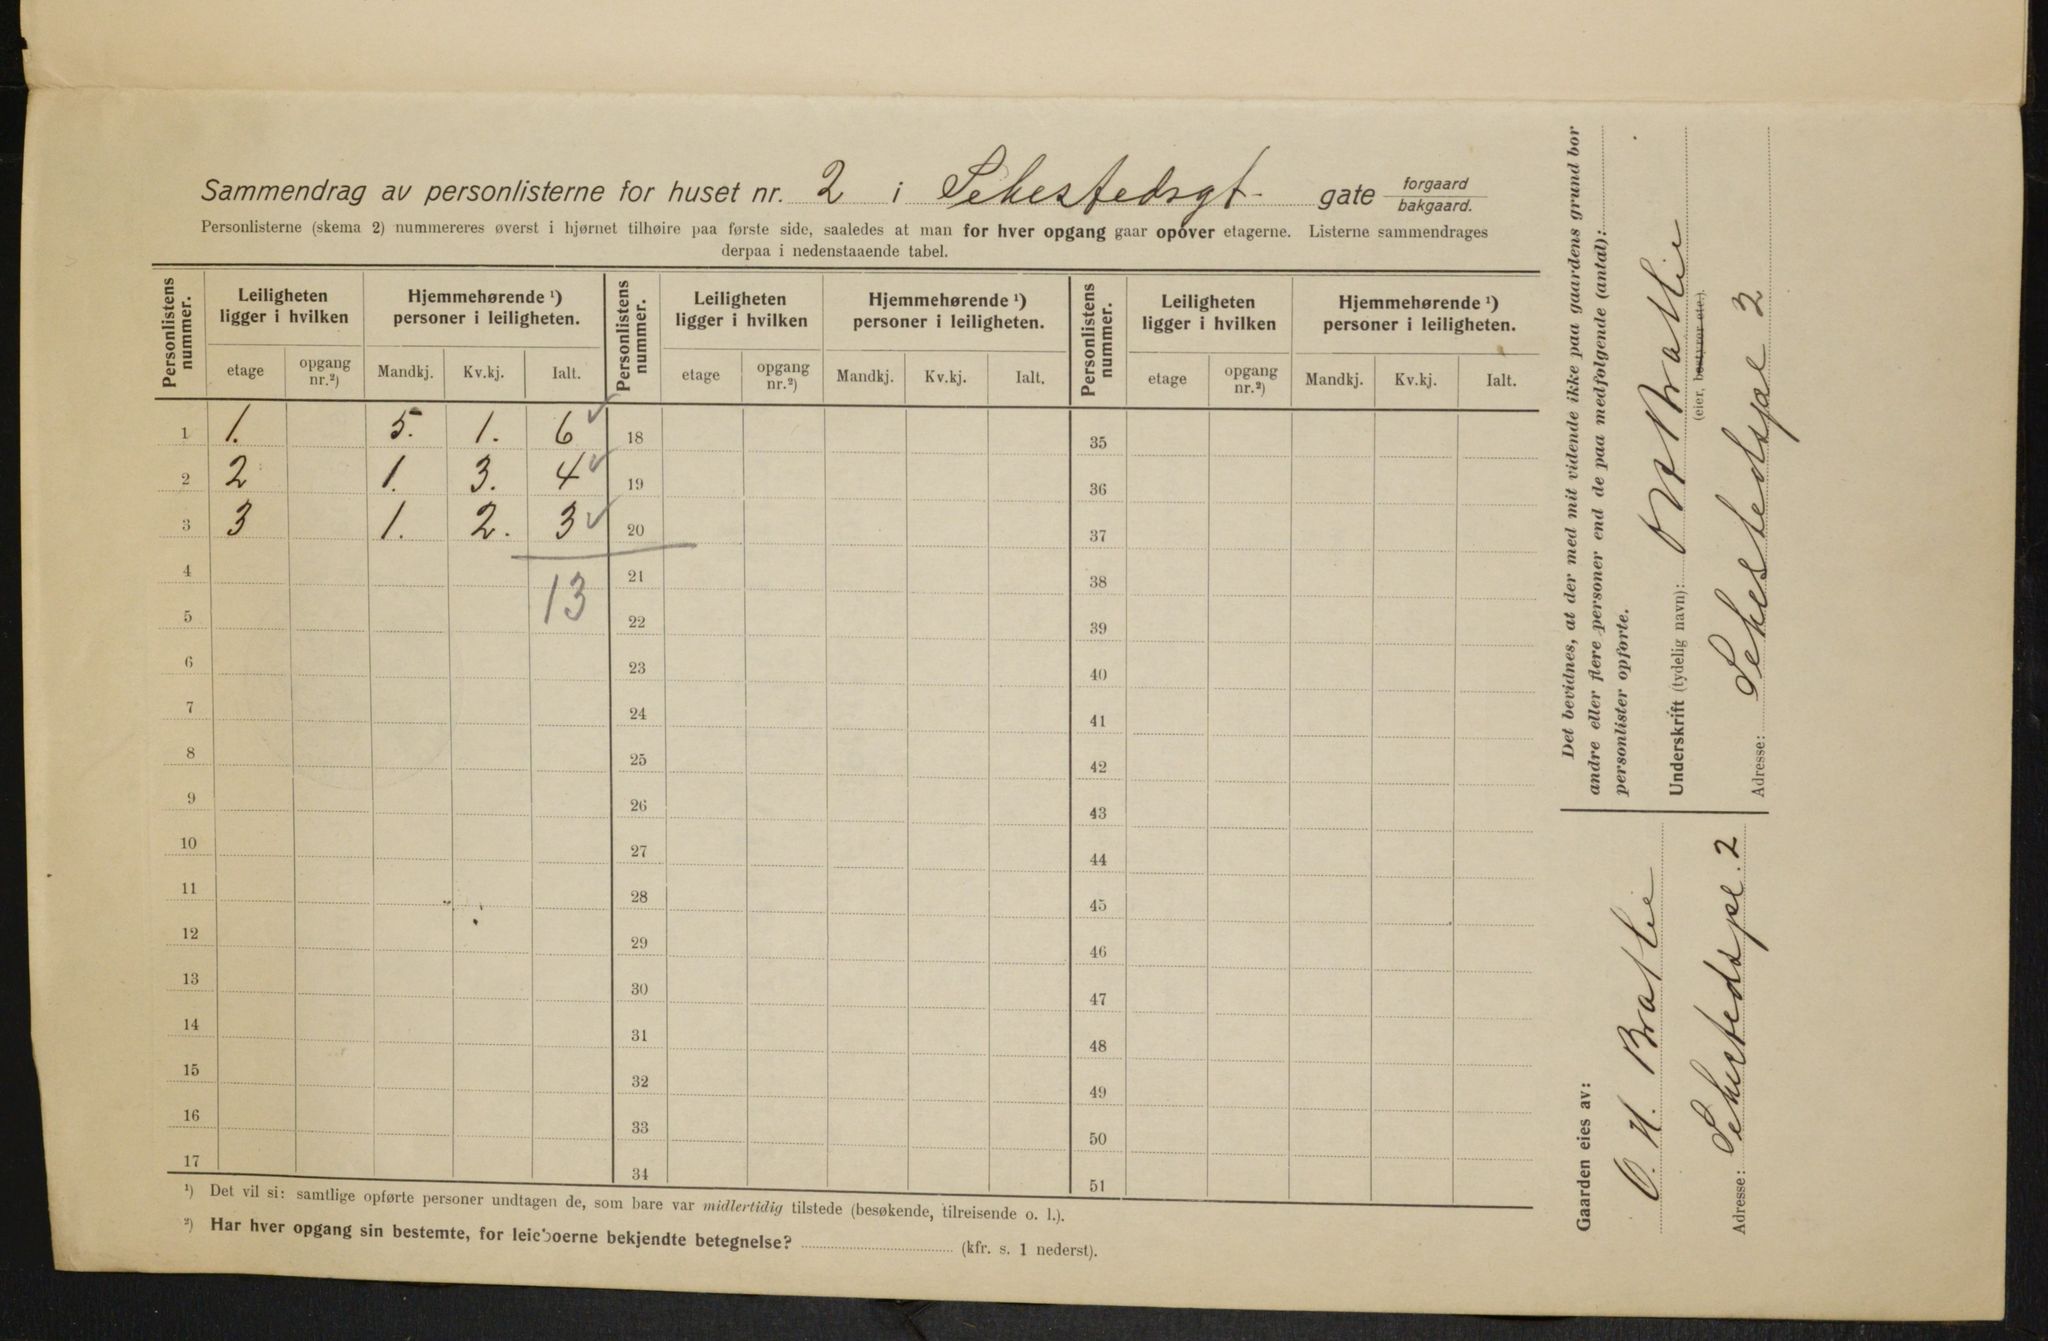 Sammendrag av personlisterne for huset nr. 2 i Sehestedsgt. gate forgaard bakgaard.
Personlisterne (skema 2) nummereres øverst i hjørnet tilhøire paa første side, saaledes at man for hver opgang gaar opover etagerne. Listerne sammendrages
derpaa i nedenstaaende tabel.
Personlistens nummer. Leiligheten ligger i hvilken Hjemmehørende ¹) personer i leiligheten. Personlistens nummer. Leiligheten ligger i hvilken Hjemmehørende ¹) personer i leiligheten. Personlistens nummer. Leiligheten ligger i hvilken Hjemmehørende ¹) personer i leiligheten.
etage opgang nr.²) Mandkj. Kv.kj. Ialt. etage opgang nr.²) Mandkj. Kv.kj. Ialt. etage opgang nr.²) Mandkj. Kv.kj. Ialt.
1 1. 5. 1. 6 ✓ 18 35
2 2 1. 3. 4 ✓ 19 36
3 3 1. 2. 3 ✓ 20 37
4 13 21 38
5 22 39
6 23 40
7 24 41
8 25 42
9 26 43
10 27 44
11 28 45
12 29 46
13 30 47
14 31 48
15 32 49
16 33 50
17 34 51
¹) Det vil si: samtlige opførte personer undtagen de, som bare var midlertidig tilstede (besøkende, tilreisende o. l.).
²) Har hver opgang sin bestemte, for leieboerne bekjendte betegnelse? (kfr. s. 1 nederst).
Det bevidnes, at der med mit vidende ikke paa gaardens grund bor
andre eller flere personer end de paa medfølgende (antal):
personlister opførte.
Underskrift (tydelig navn): O H Brathie
(eier, bestyrer etc.).
Adresse: Sehestedspl 2
Gaarden eies av:
O. H. Brathie
Adresse: Sehestedspl. 2